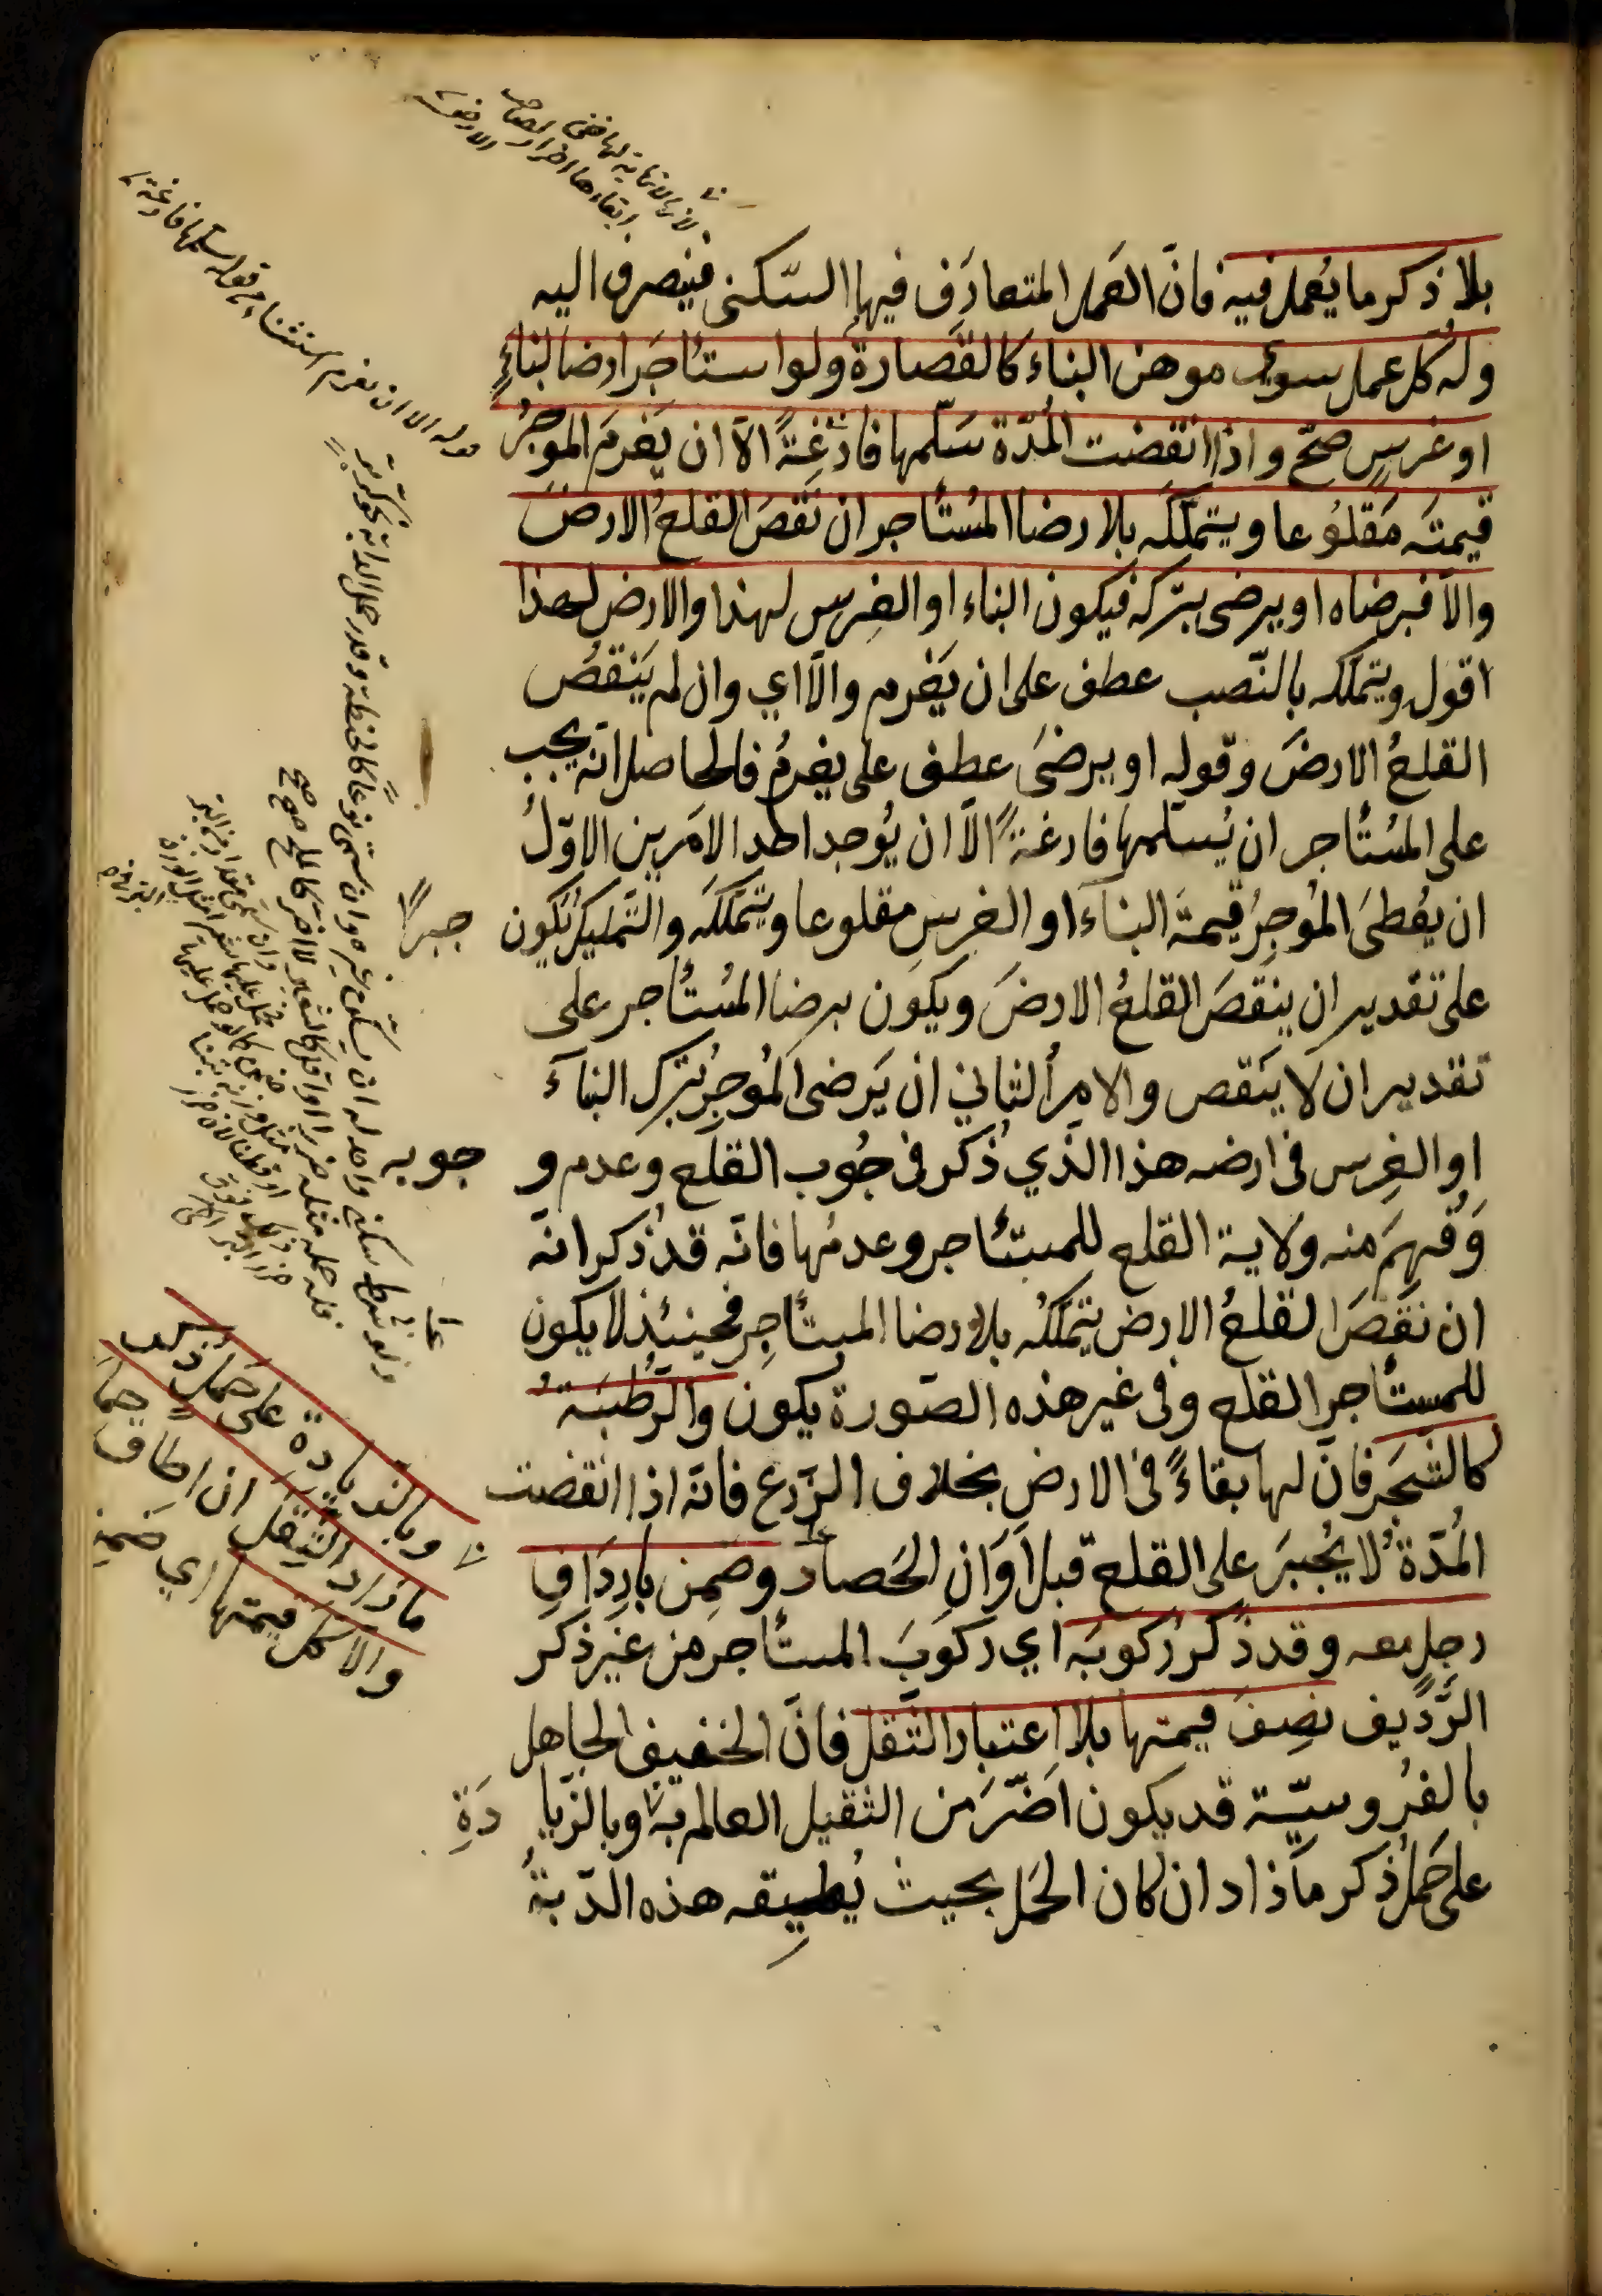 بلا ذكر ما يُعمل فيه فانّ العَمل المتعارَف فيها السّكنى فينصرف اليه
وله كل عمل سوى موهن البناء كالقَصارة ولو استأجَر ارضا لبناءٍ
او غرسٍ صحّ واذا انقضت المُدّة سَلّمها فارِغةً الّا ان يَغرمَ الموجرُ
قيمتَه مَقلُوعا ويتملّكَه بلا رضا المُستأجر ان نَقصَ القلعُ الارضَ
والّا فبرضاه او يرضى بتركه فيكون البناء او الغِرس لهذا والارض لهذا
اقول ويتملكه بالنّصب عطف على ان يَغرم والّا اي وان لم يَنقُص
القلعُ الارضَ وقوله او يرضىَ عطف على يغرمُ فالحاصل انّه يجب
على المُستأجر ان يُسلّمها فارغةً الّا ان يُوجد احد الامَرين الاوّلُ
ان يُعطىَ المُوجِرُ قيمةَ البناءَ او الغرسِ مقلوعا ويتملّكَه والتَّمليكُ يكون
جبراً
على تقدير ان ينقصَ القلعُ الارضَ ويكون برضا المُستأجر على
تقدير ان لا ينَقص والامرُ الثاني ان يَرضى المُوجِرُ بتركِ البنآءَ
او الغِرس في ارضه هذا الذّي ذُكر في جُوب القلع وعدم و
جوبه
وَفُهِمَ منه ولاية القلع للمستأجر وعدمُها فانّه قد ذُكر انّه
ان نقَصَ القلعُ الارض يتملّكُه بلا رضا المستأجِر فحينئذ لا يكون
للمستأجر القلع وفي غير هذه الصّورة يكون والرَّطبَةُ
كالشَّجَر فانّ لها بقاءً في الارض بخلاف الزَّرع فانّه اذا انقضت
المُدّةُ لا يُجبَرَ على القلع قبل اَوَانِ الحَصاد وضَمِن بارِدَافِ
رجلٍ معه وقد ذُكر ركوبَه اي ركوبَ المستأجر من غير ذكر
الرَّديف نصِفَ قيمتها بلا اعتبار الثّقل فانّ الخفيف الجاهل
بالفرُوسيّة قد يكون اَضرَّ من الثقيل العالم به وبالزّيا دَةِ
على حَملٍ ذُكر ما زاد ان كان الحَمل بحيث يُطيِقه هذه الدّابّةُ
لانه لا نهاية لها ففي
ابقاءها اضرار بصاحب
الارض
قوله الا ان يغرم استثناء من قوله سلمها فارغة
وبالزيادة على حَملٍ ذكر
ما زاد الثِقَل ان اطاق حملَ
والّا كل قيمتها اي ضَمِنَ